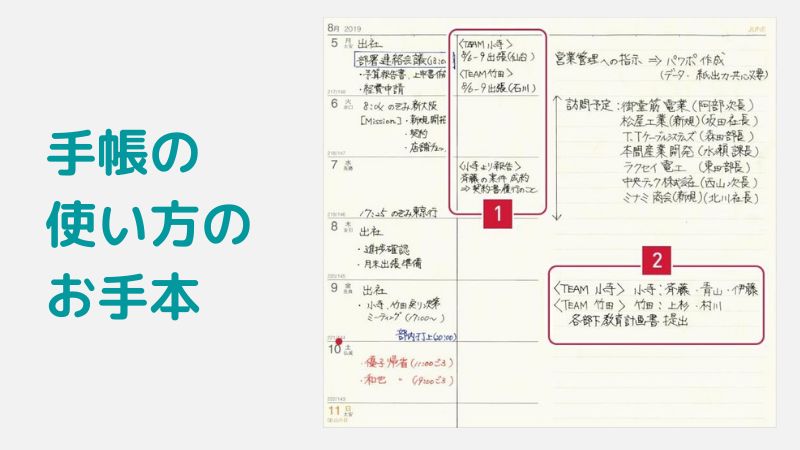 手帳の
使い方の
お手本
8月 2019
5 月 大安
出社
部署連絡会議(13:00
・予算報告書、上申書作
・経費申請
217/148
6 火
8:04 のぞみ 新大阪
[Mission]・新規開拓
・契約
・店舗
218/147
7 水
17:25 のぞみ 東京行
219/146
8 木
出社
・進捗確認
・月末出張準備
220/145
9 金
出社
・小寺、竹田戻り次第
ミーティング(17:00〜)
部内打上(20:00)
10 土 仏滅
・優子帰省(11:00ごろ)
・和也 〃 (19:00ごろ)
222/143
11 日 大安
<TEAM 小寺>
8/6-9 出張(仙台)
<TEAM 竹田>
8/6-9 出張(石川)
<小寺より報告>
斉藤の案件 成約
⇒契約書履行のこと
1
営業管理への指示 ⇒ パワポ作成
(データ・紙出力共に必要)
訪問予定:御堂筋電業(阿部次長)
松屋工業(新規)(坂田社長)
T.Tケーブルシステムズ(森田部長)
本間産業開発(水瀬課長)
ラクセイ電工 (東田部長)
中央テック株式会社(西山次長)
ミナミ商会(新規)(北川社長)
2
<TEAM 小寺> 小寺:斉藤・青山・伊藤
<TEAM 竹田> 竹田:上杉・村川
各部下教育計画書 提出